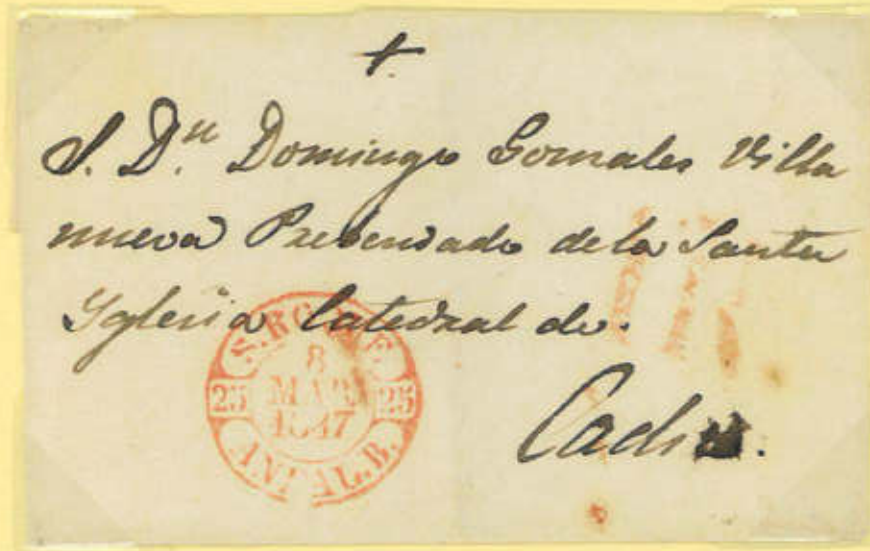 +
S. Dn. Domingo Gonzales Villa
nueva Prebendado de la Santa
Yglesia Catedral de.
Cadiz.
S. ROQUE
8
MAR
1847
25 25
ANDAL. B.